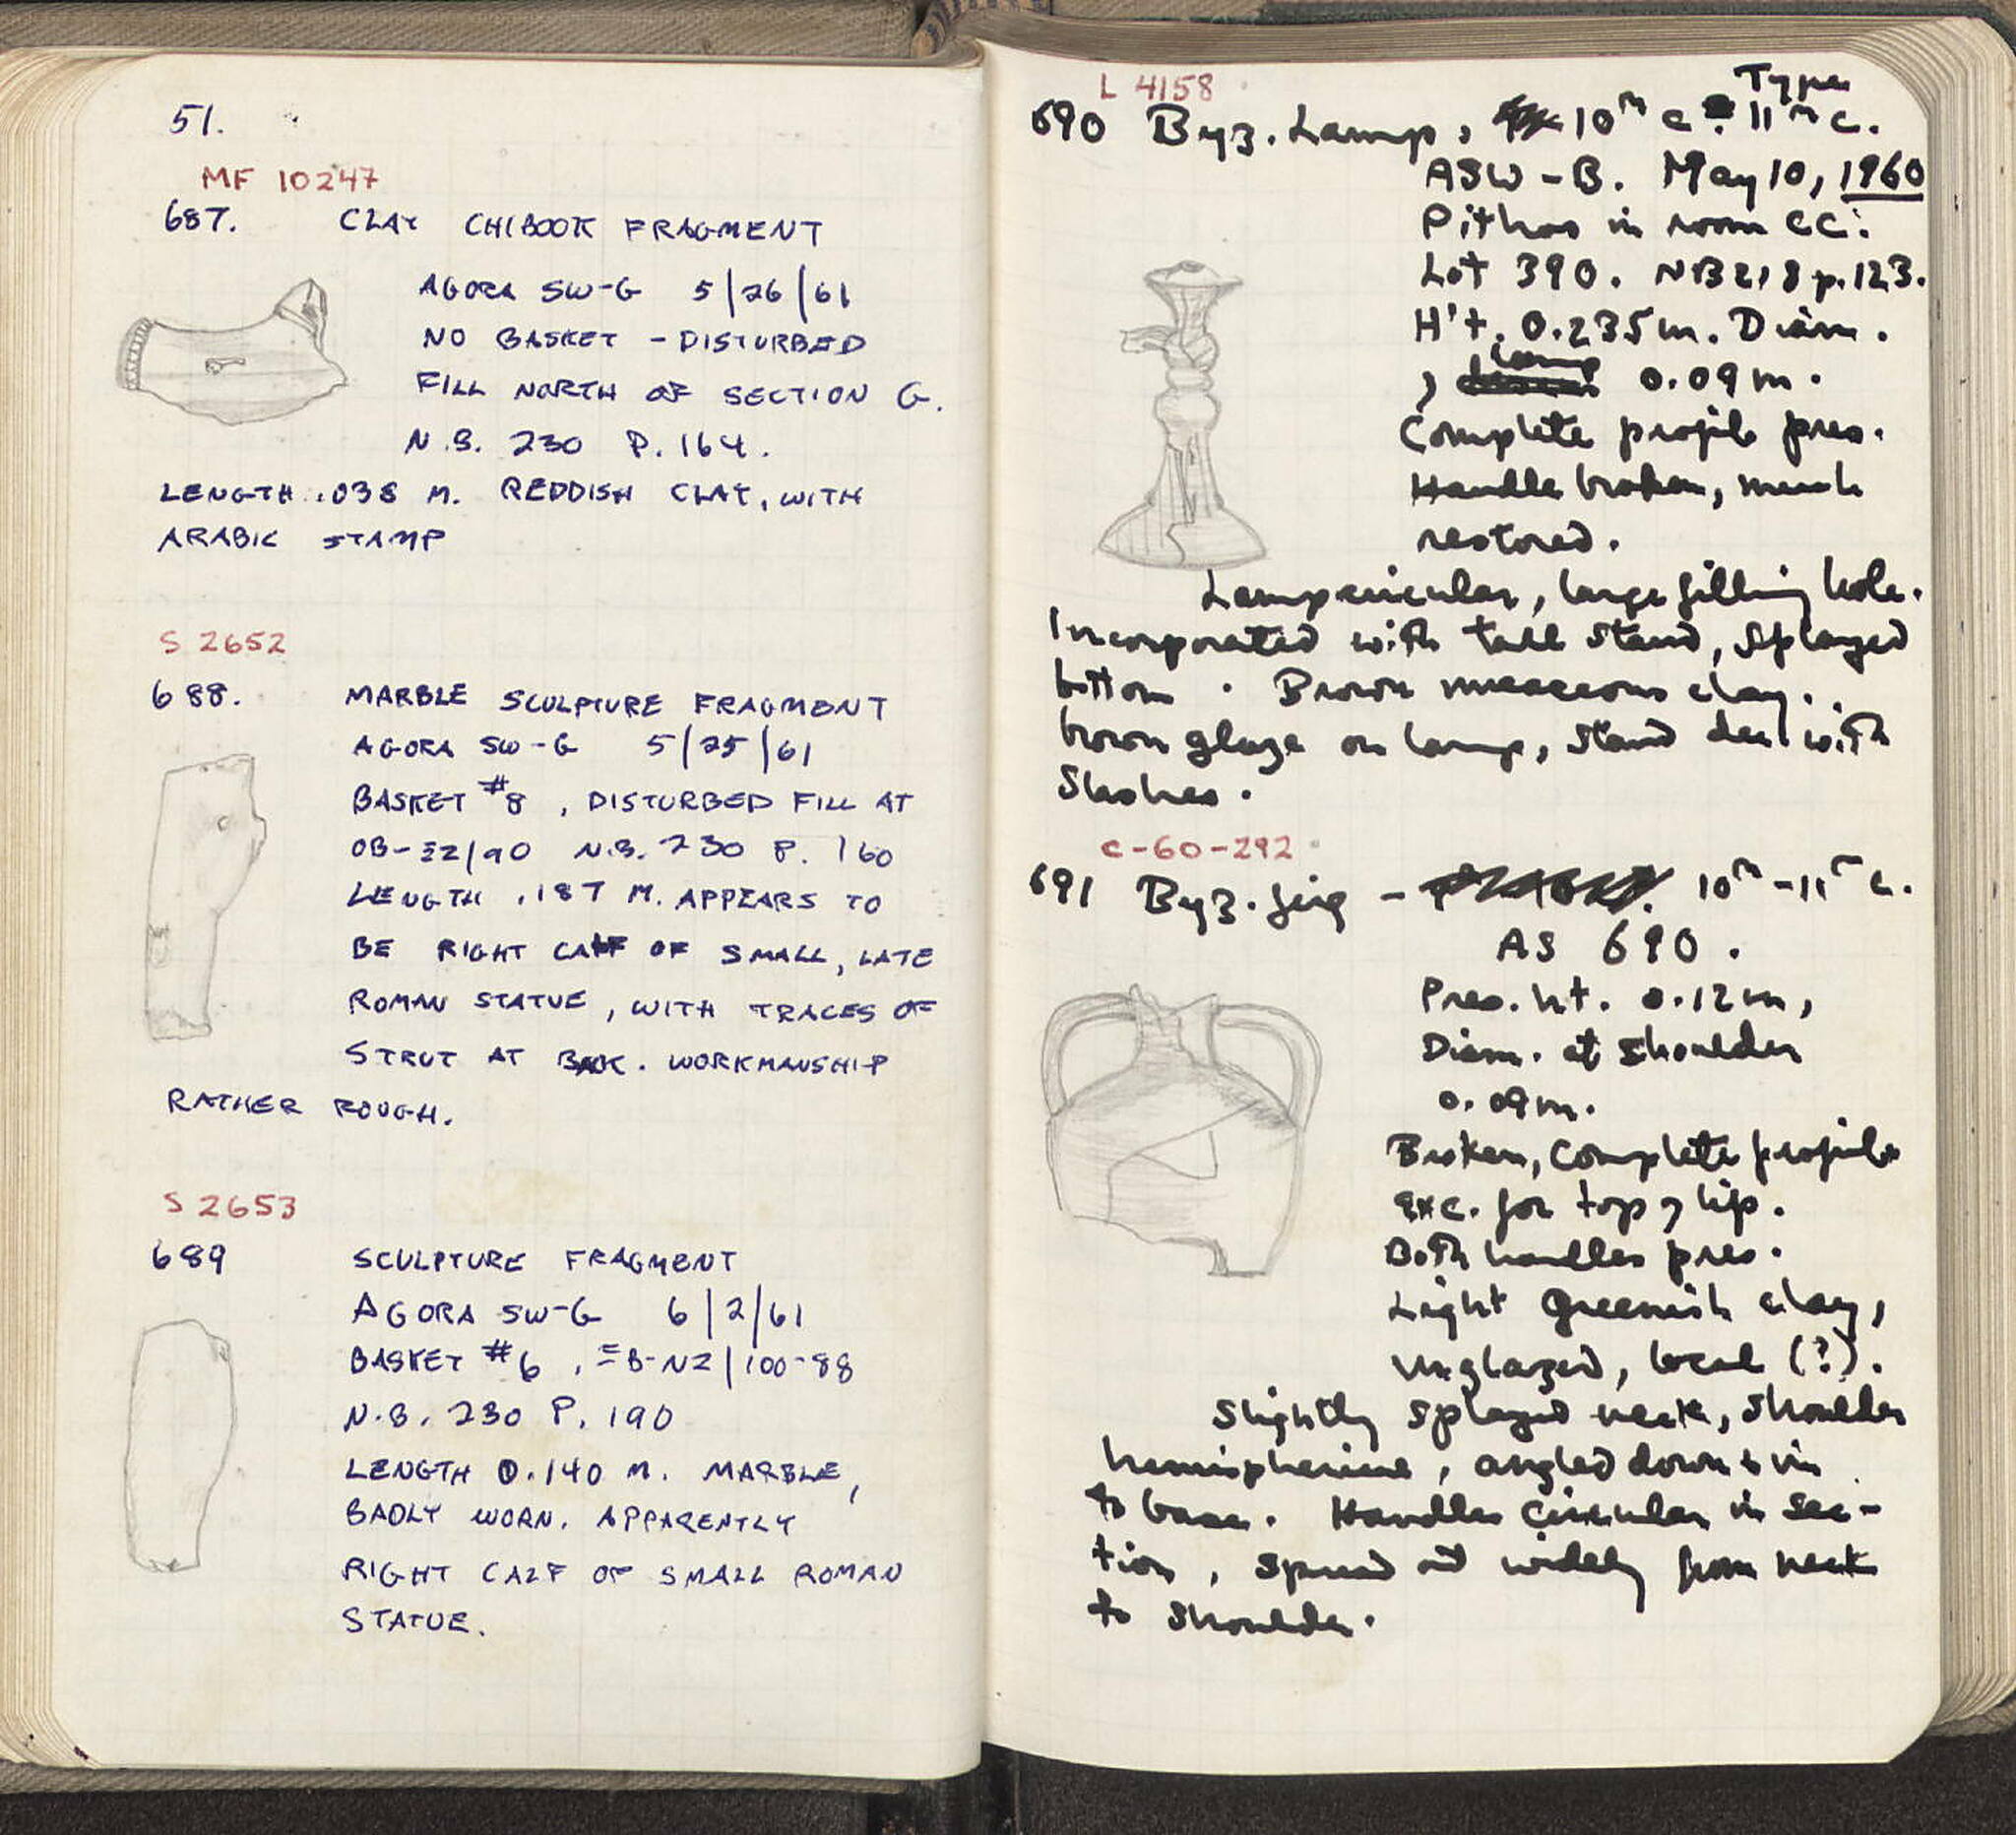 51.
MF 10247
687. CLAY CHIBOOK FRAGMENT
AGORA SW-G 5/26/61
NO BASKET - DISTURBED
FILL NORTH OF SECTION G.
N.B. 230 P. 164.
LENGTH .038 M. REDDISH CLAY, WITH
ARABIC STAMP
S 2652
688. MARBLE SCULPTURE FRAGMENT
AGORA SW-G 5/25/61
BASKET #8, DISTURBED FILL AT
N.B. 230 P. 160
LENGTH .187 M. APPEARS TO
BE RIGHT CALF OF SMALL, LATE
ROMAN STATUE, WITH TRACES OF
STRUT AT BACK. WORKMANSHIP
RATHER ROUGH.
S 2653
689 SCULPTURE FRAGMENT
AGORA SW-G 6/2/61
BASKET #6, ΞB-NZ/100-88
N.B. 230 P. 190
LENGTH 0.140 M. MARBLE,
BADLY WORN. APPARENTLY
RIGHT CALF OF SMALL ROMAN
STATUE.
L 4158
Type
690 Byz. Lamp, 10th c - 11th c.
ASW-B. May 10, 1960
Pithos in room CC.
Lot 390. NB 218 p. 123.
H't. 0.235m. Diam.
, lamp 0.09m.
Complete profile pres.
Handle broken, much
restored.
Lamp circular, large filling hole.
Incorporated with tall stand, splayed
bottom. Brown micaceous clay.
brown glaze on lamp, stand dec with
slashes.
C-60-292
691 Byz. jug - 10th - 11th c.
AS 690.
Pres. ht. 0.12m,
Diam. at shoulder
0.09m.
Broken, complete profile
exc. for top of lip.
Both handles pres.
Light greenish clay,
unglazed, local (?).
Slightly splayed neck, shoulder
hemispherical, angled down & in
to base. Handles circular in sec-
tion, spread out widely from neck
to shoulder.